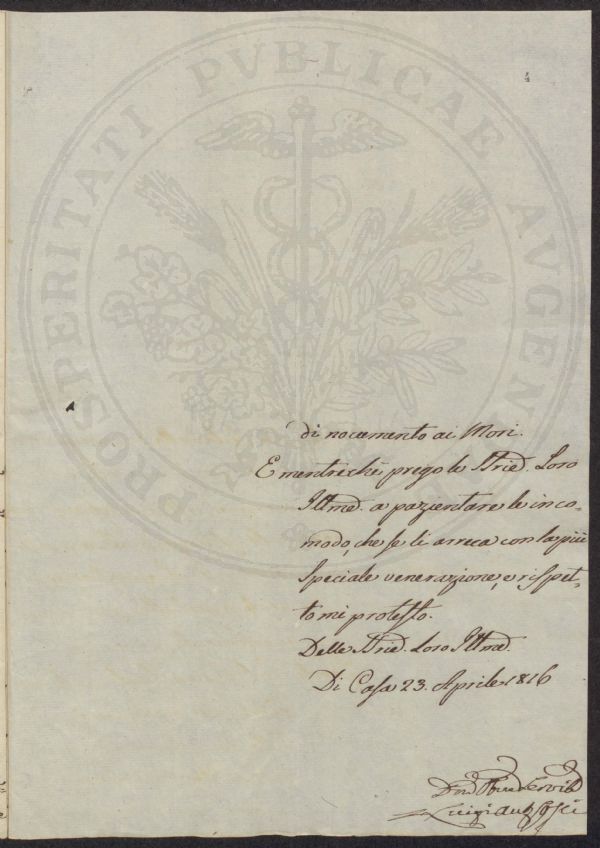 4
PROSPERITATI PVBLICAE AVGENDAE
di nocumento ai Mori.
E mentrechè prego le Loro
Illme. a pazientare le inco-
modo, che se li arreca con la più
speciale venerazione, e rispet-
to mi protesto.
Delle Loro Illme.
Di Casa 23. Aprile 1816
Luigi